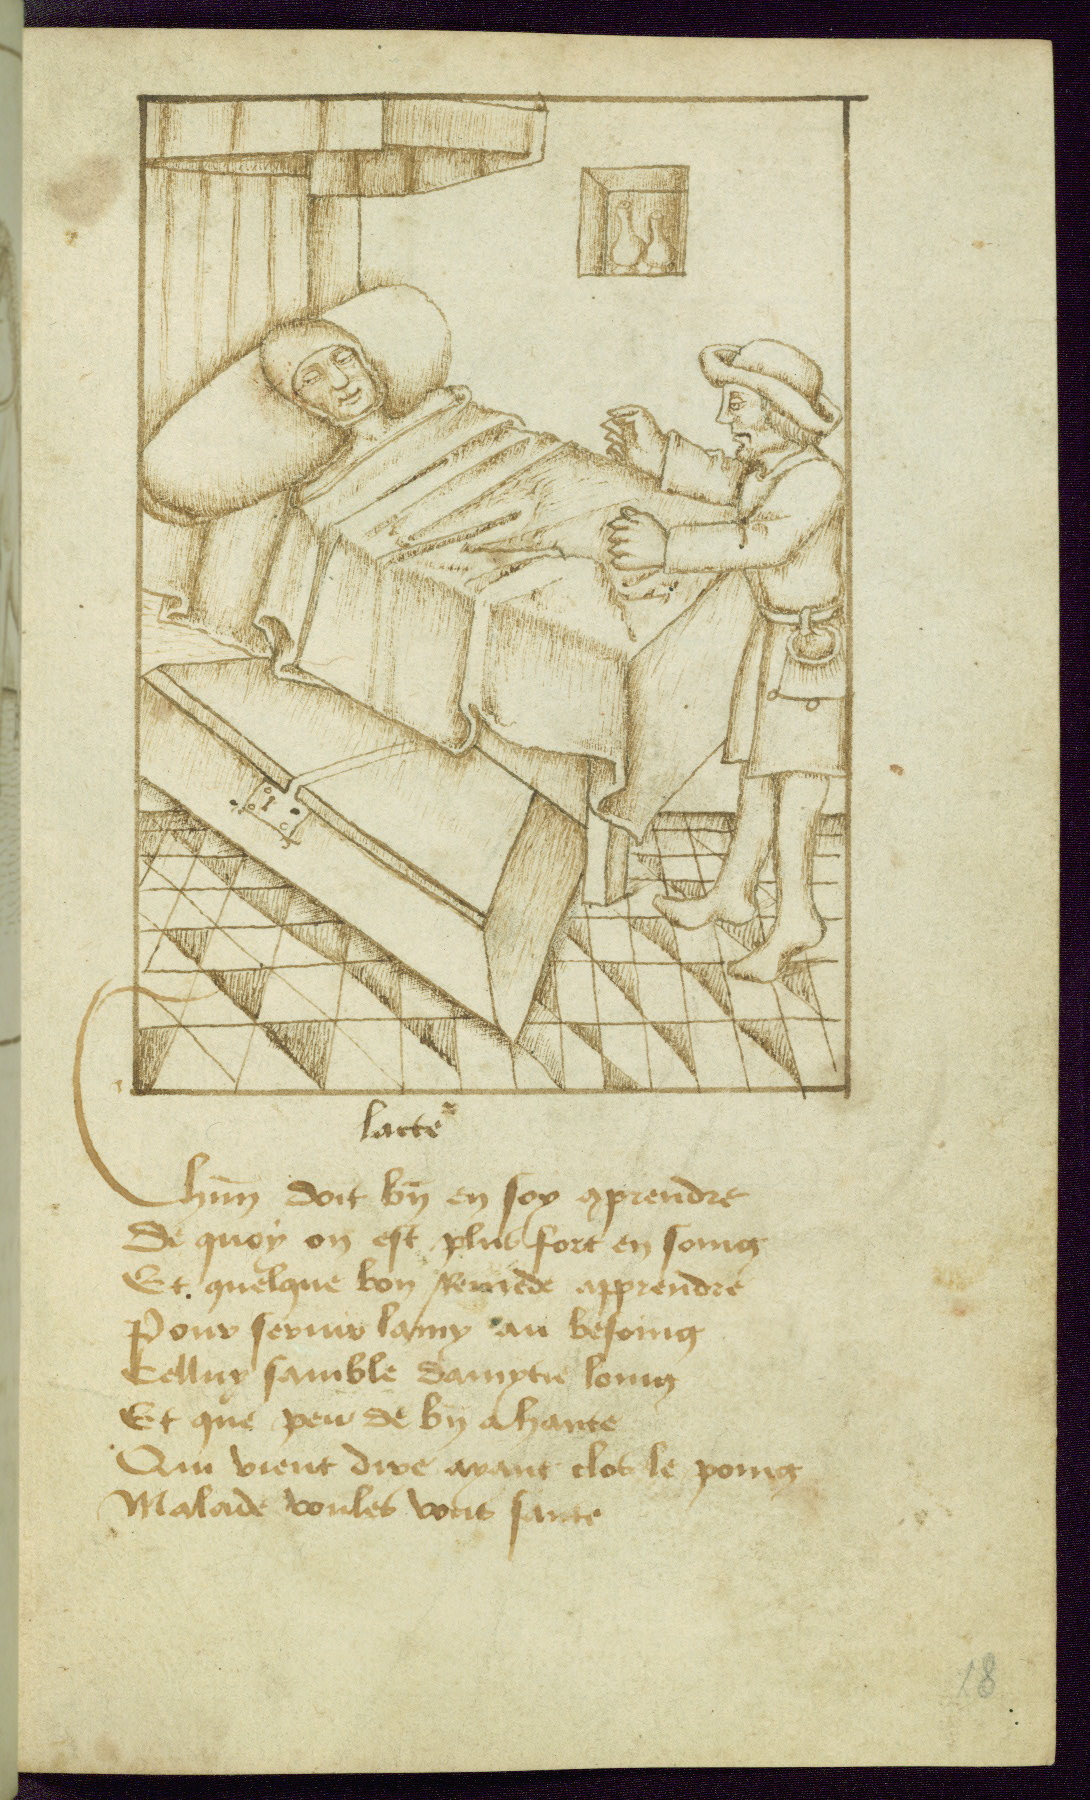 lacte
Chun doit bn en soy aprendre
De quoy on est plus fort en soing
Et quelque bon Remede apprendre
Pour servir lamy au besoing
Celluy samble damytie loing
Et que peu de bn a hante
Qui vient dire ayant clos le poing
Malade voules vous sante
18